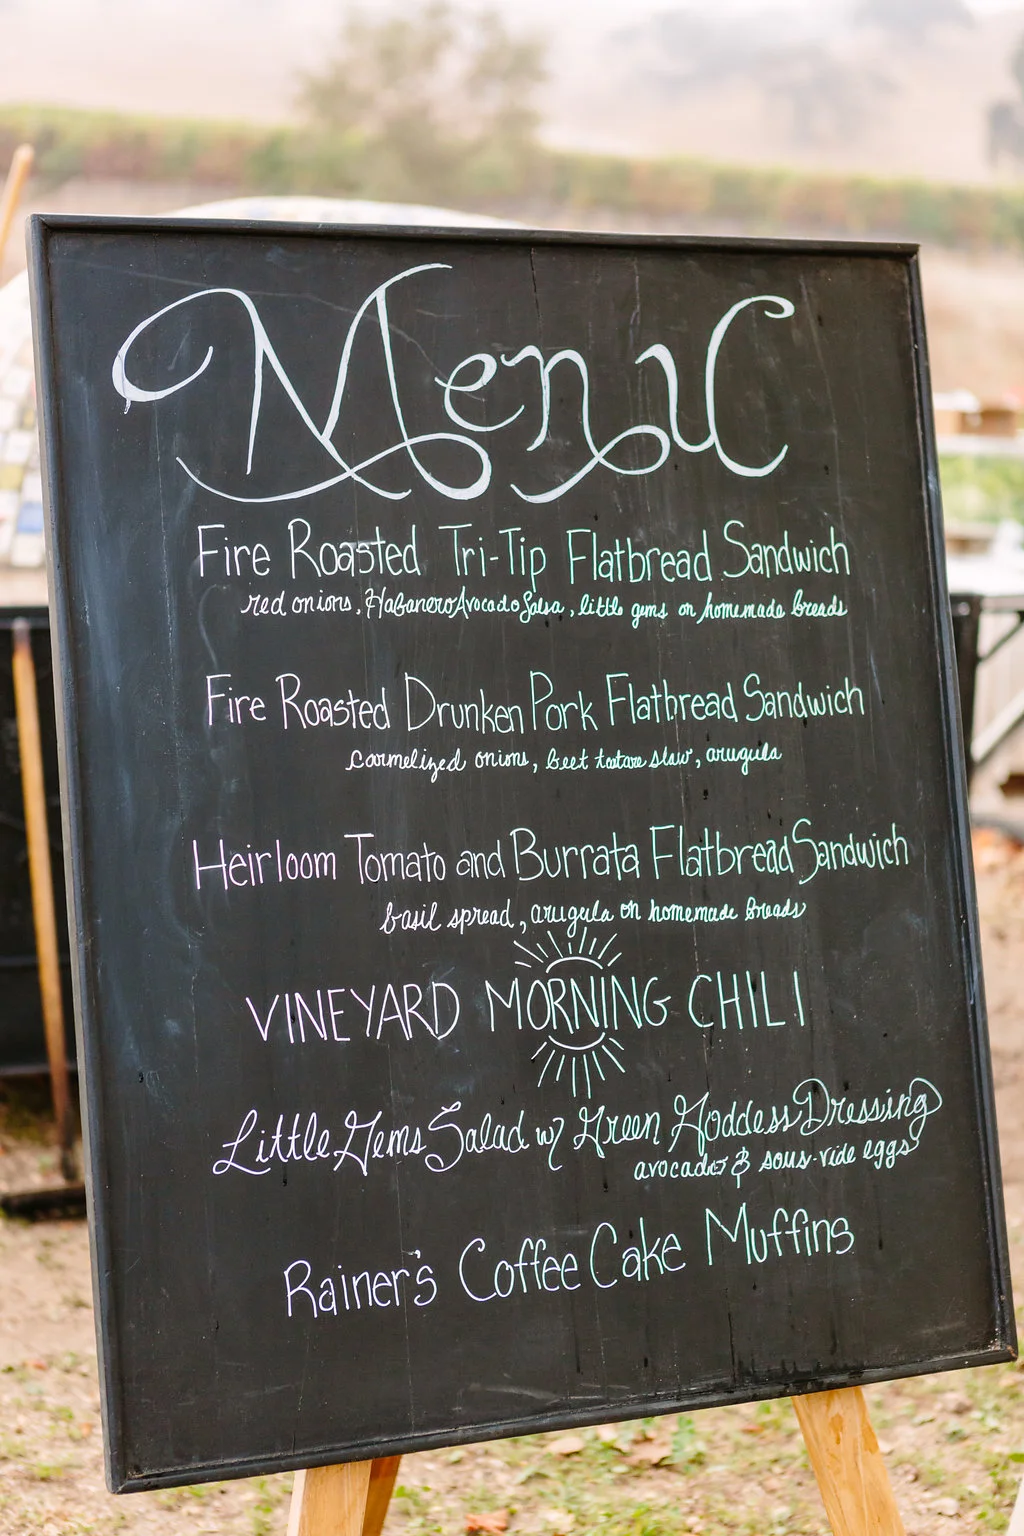 Menu
Fire Roasted Tri-Tip Flatbread Sandwich
red onions, Habanero Avocado Salsa, little gems on homemade breads
Fire Roasted Drunken Pork Flatbread Sandwich
carmelized onions, beet tartare slaw, arugula
Heirloom Tomato and Burrata Flatbread Sandwich
basil spread, arugula on homemade breads
VINEYARD MORNING CHILI
Little Gems Salad w/ Green Goddess Dressing
avocados & sous-vide eggs
Rainer's Coffee Cake Muffins